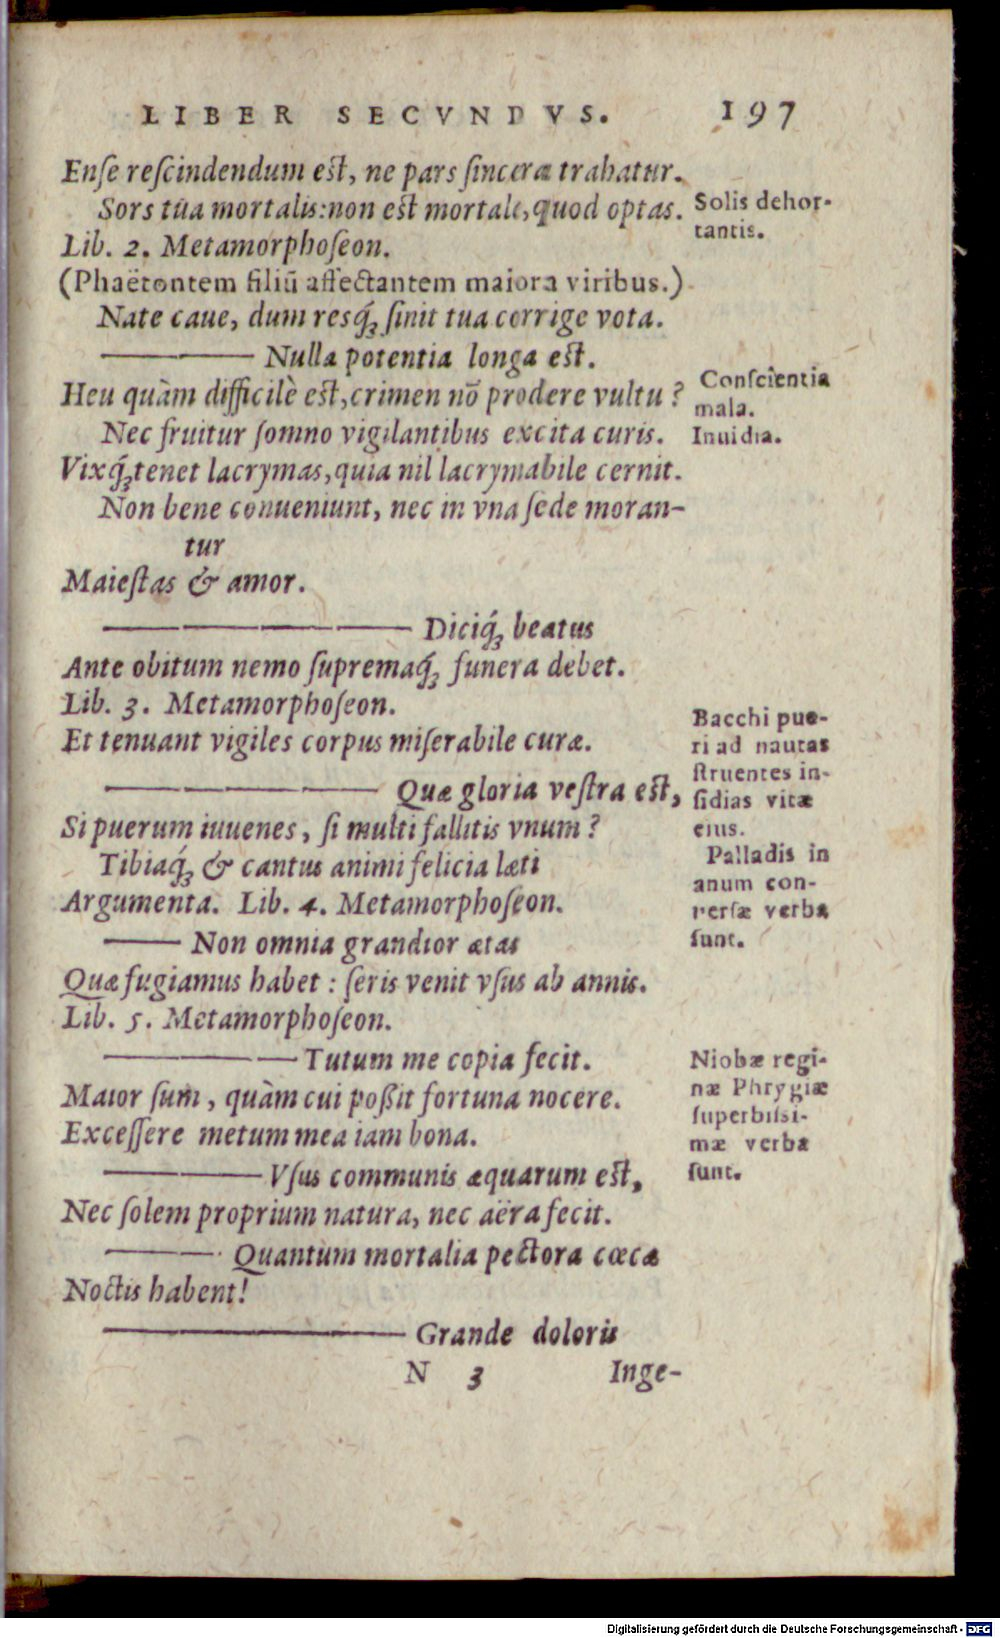 LIBER SECVNDVS. 197
Enſe reſcindendum eſt, ne pars ſincera trahatur.
Sors tua mortalis: non eſt mortale, quod optas.
Lib. 2. Metamorphoſeon.
(Phaëtontem filiũ affectantem maiora viribus.)
Nate caue, dum resq́ꝫ ſinit tua corrige vota.
Nulla potentia longa eſt.
Heu quàm difficilè eſt, crimen nō prodere vultu?
Nec fruitur ſomno vigilantibus excita curis.
Vixq́ꝫ tenet lacrymas, quia nil lacrymabile cernit.
Non bene conueniunt, nec in vna ſede moran-
tur
Maieſtas & amor.
Diciq́ꝫ beatus
Ante obitum nemo ſupremaq́ꝫ funera debet.
Lib. 3. Metamorphoſeon.
Et tenuant vigiles corpus miſerabile curæ.
Quæ gloria veſtra eſt,
Si puerum iuuenes, ſi multi fallitis vnum?
Tibiaq́ꝫ & cantus animi felicia læti
Argumenta. Lib. 4. Metamorphoſeon.
Non omnia grandior ætas
Quæ fugiamus habet: ſeris venit vſus ab annis.
Lib. 5. Metamorphoſeon.
Tutum me copia fecit.
Maior ſum, quàm cui poßit fortuna nocere.
Exceſſere metum mea iam bona.
Vſus communis æquarum eſt,
Nec ſolem proprium natura, nec aëra fecit.
Quantum mortalia pectora cœcæ
Noctis habent!
Grande doloris
N 3 Inge-
Solis dehor-
tantis.
Conſcientia
mala.
Inuidia.
Bacchi pue-
ri ad nautas
ſtruentes in-
ſidias vitæ
eius.
Palladis in
anum con-
verſæ verba
ſunt.
Niobæ regi-
næ Phrygiæ
ſuperbiſsi-
mæ verba
ſunt.
Digitalisierung gefördert durch die Deutsche Forschungsgemeinschaft - DFG